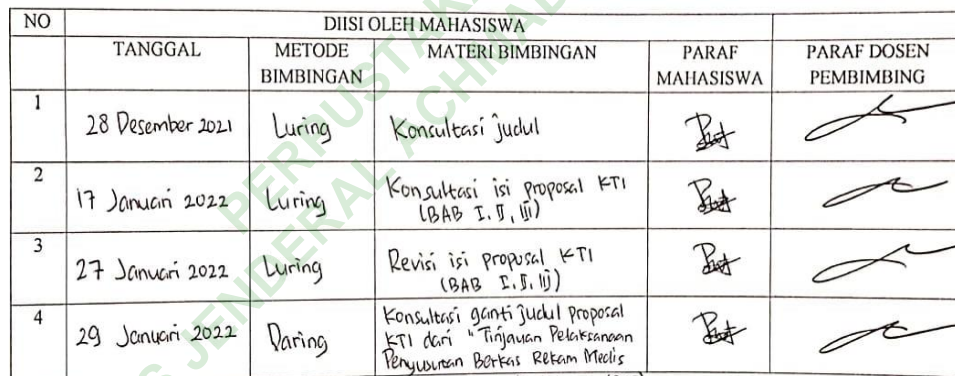 NO DIISI OLEH MAHASISWA
TANGGAL METODE BIMBINGAN MATERI BIMBINGAN PARAF MAHASISWA PARAF DOSEN PEMBIMBING
1 28 Desember 2021 Luring Konsultasi judul
2 17 Januari 2022 Luring Konsultasi isi proposal KTI
(BAB I, II, III)
3 27 Januari 2022 Luring Revisi isi proposal KTI
(BAB I, II, III)
4 29 Januari 2022 Daring Konsultasi ganti judul proposal
KTI dari "Tinjauan Pelaksanaan
Penyusutan Berkas Rekam Medis